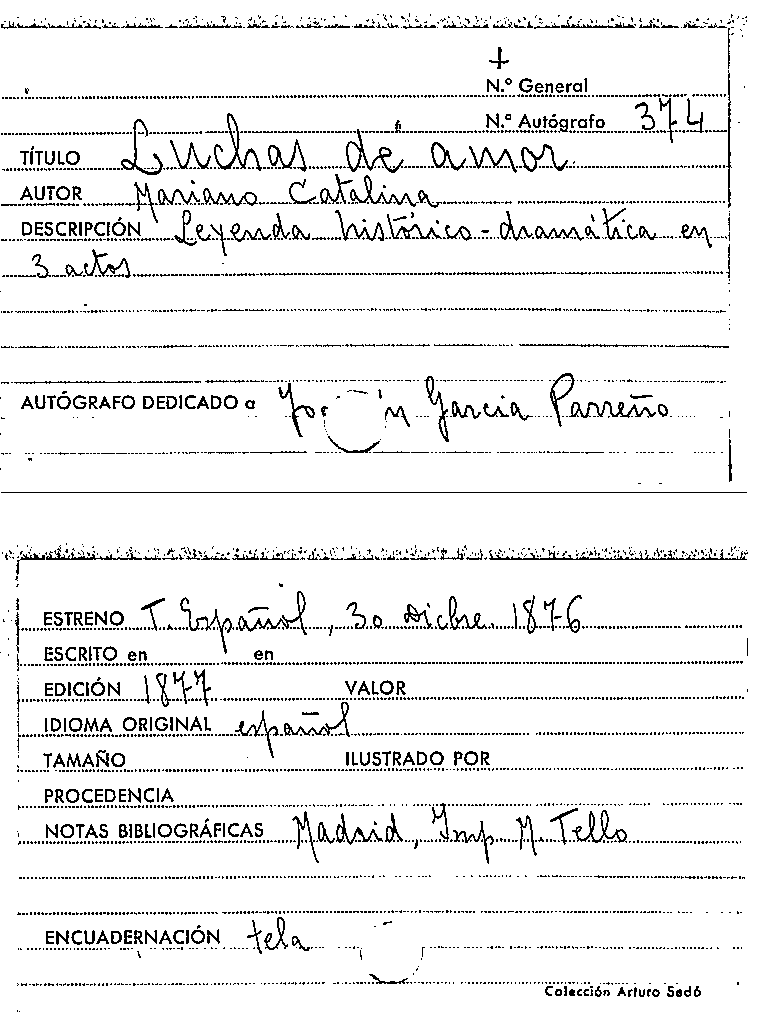 N.º General
N.º Autógrafo 374
TÍTULO Luchas de amor
AUTOR Mariano Catalina
DESCRIPCIÓN Leyenda histórico-dramática en
3 actos
AUTÓGRAFO DEDICADO a García Parreño
ESTRENO T. Español, 30 Dicbre. 1876
ESCRITO en en
EDICIÓN 1877 VALOR
IDIOMA ORIGINAL español
TAMAÑO ILUSTRADO POR
PROCEDENCIA
NOTAS BIBLIOGRÁFICAS Madrid, Imp. M. Tello
ENCUADERNACIÓN tela
Colección Arturo Sedó